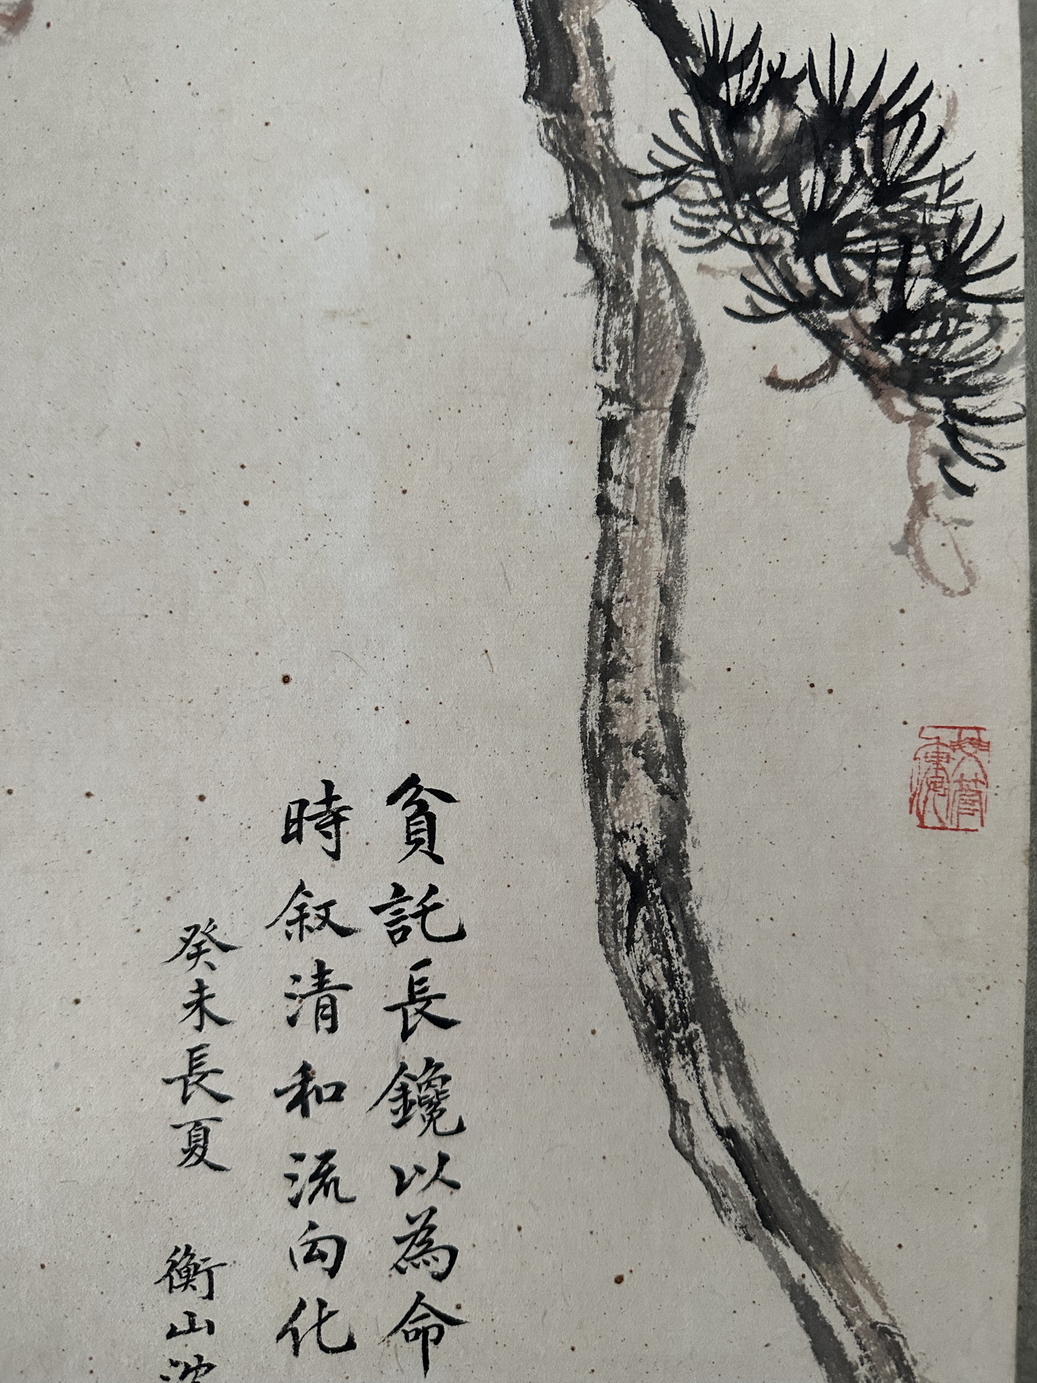 貧託長鑱以為命
時叙清和流向化
癸未長夏 衡山